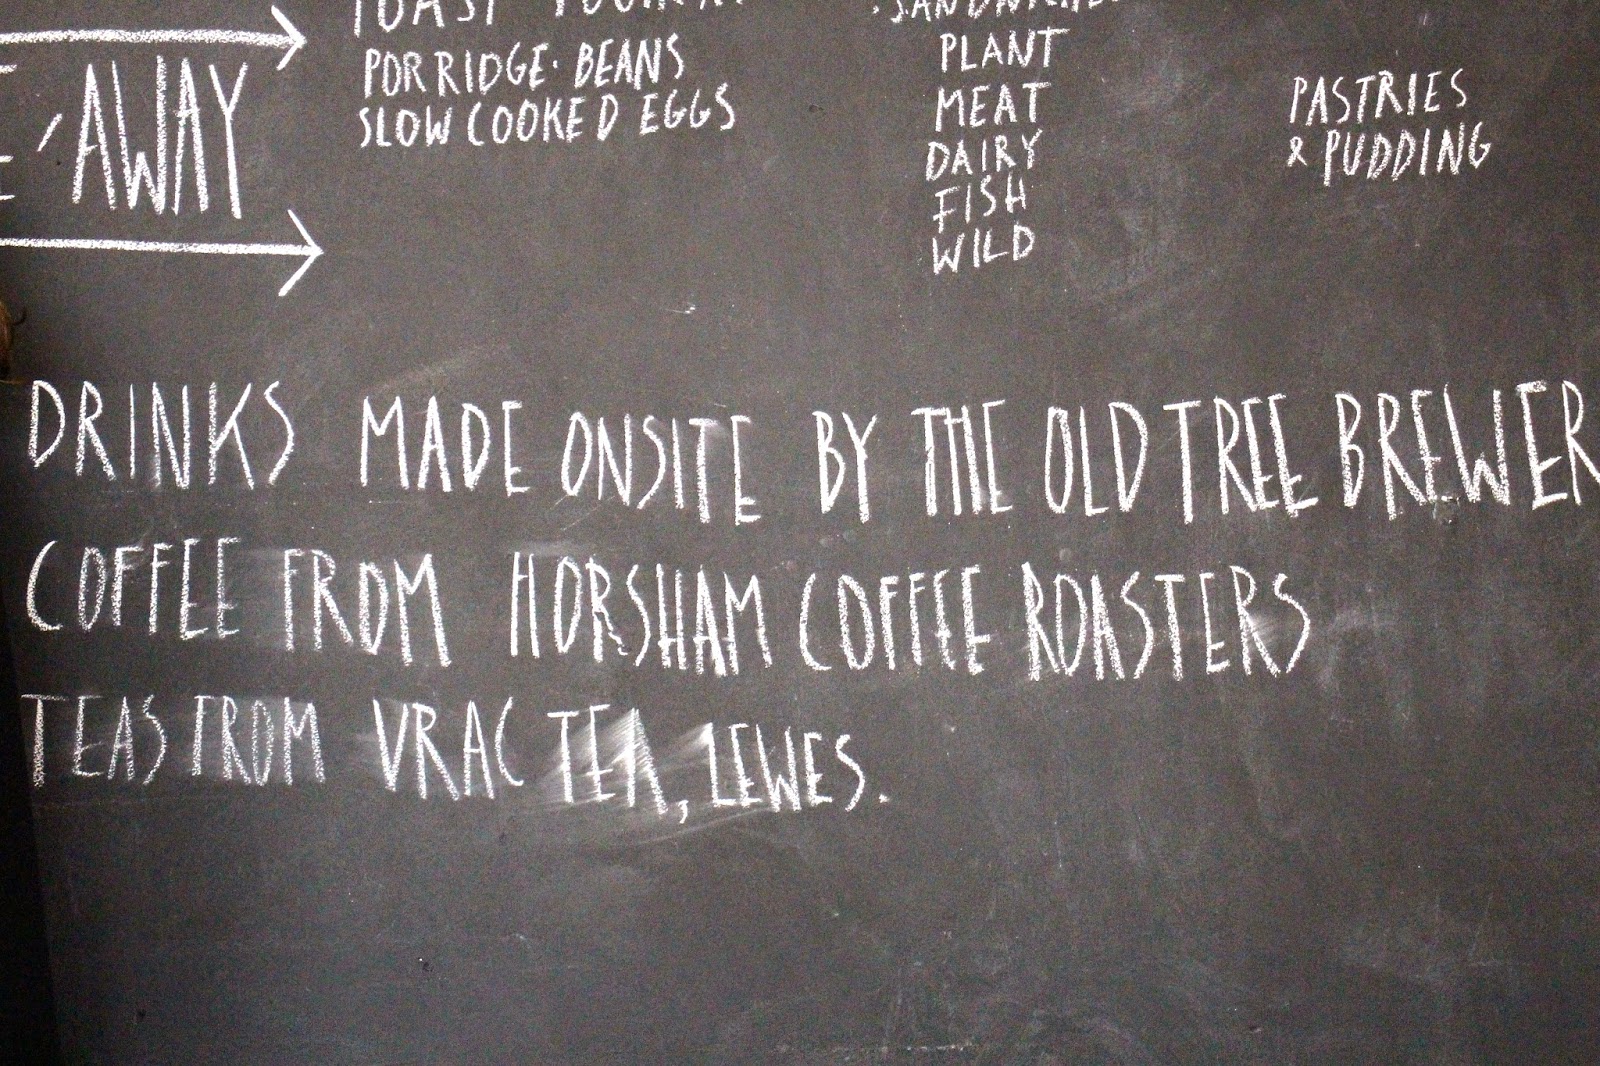 TOAST
PORRIDGE · BEANS
SLOW COOKED EGGS
'AWAY
PLANT
MEAT
DAIRY
FISH
WILD
PASTRIES
& PUDDING
DRINKS MADE ONSITE BY THE OLD TREE BREWER
COFFEE FROM HORSHAM COFFEE ROASTERS
TEAS FROM VRAC TEA, LEWES.